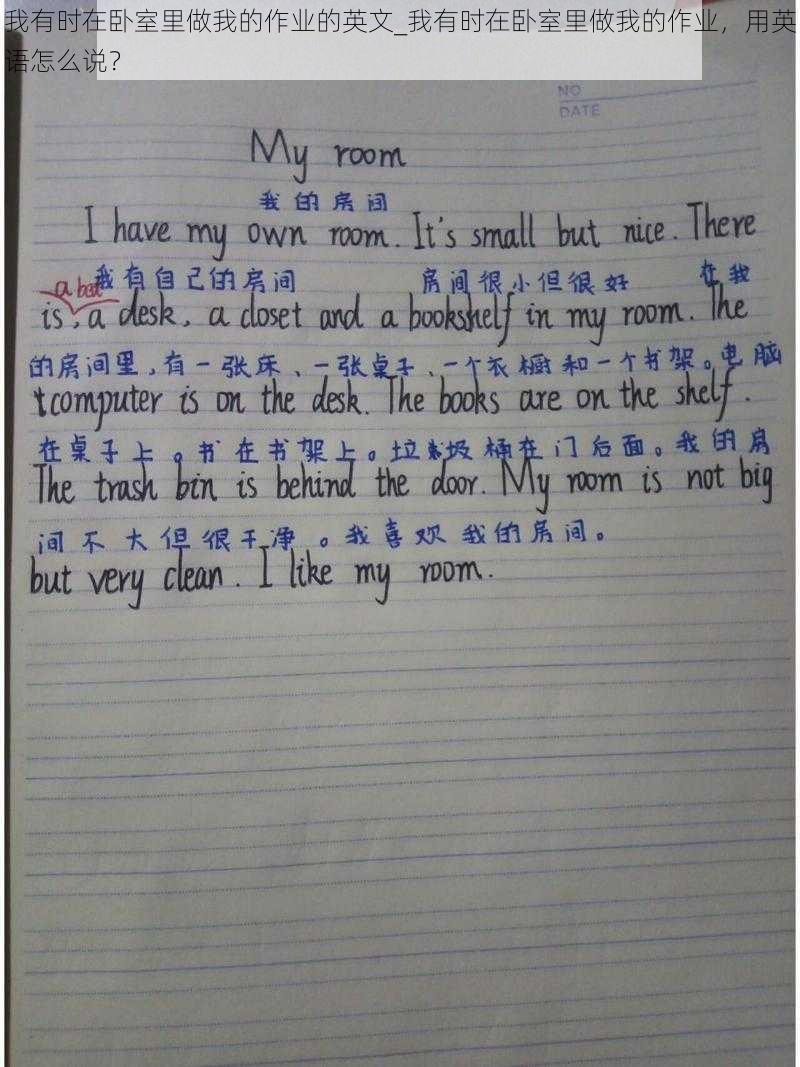 我有时在卧室里做我的作业的英文_我有时在卧室里做我的作业，用英
语怎么说？
NO
DATE
My room
我的房间
I have my own room. It's small but nice. There
我有自己的房间 房间很小但很好 在我
a bed
is, a desk, a closet and a bookshelf in my room. The
的房间里,有一张床、一张桌子、一个衣橱和一个书架。电脑
computer is on the desk. The books are on the shelf.
在桌子上。书在书架上。垃圾桶在门后面。我的房
The trash bin is behind the door. My room is not big
间不大但很干净。我喜欢我的房间。
but very clean. I like my room.